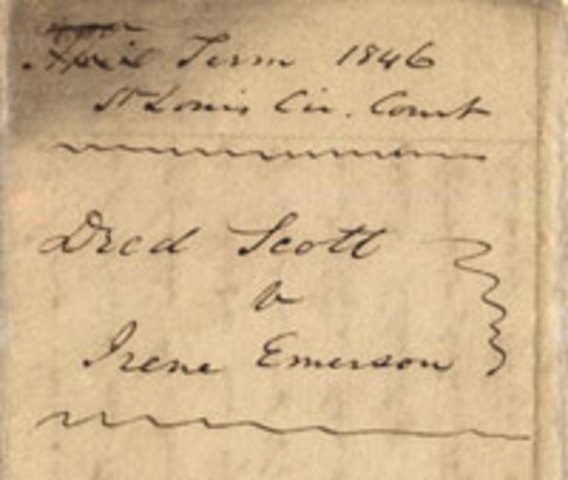 April Term 1846
St Louis Cir. Court
Dred Scott
v
Irene Emerson